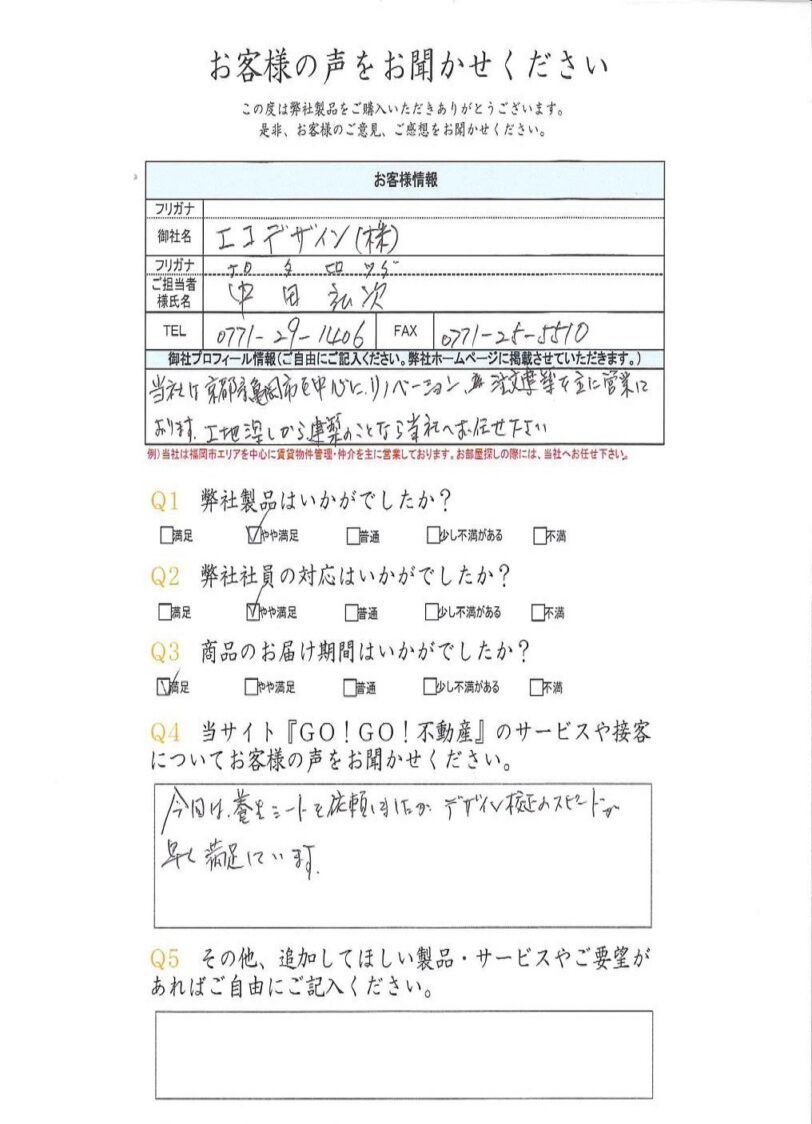 お客様の声をお聞かせください
この度は弊社製品をご購入いただきありがとうございます。
是非、お客様のご意見、ご感想をお聞かせください。
お客様情報
フリガナ
御社名 エコデザイン(株)
フリガナ
ご担当者様氏名 中田 弘次
TEL 0771-29-1406 FAX 0771-25-5510
御社プロフィール情報(ご自由にご記入ください。弊社ホームページに掲載させていただきます。)
当社は京都府亀岡市を中心に、リノベーション、注文建築を主に営業に
おります。土地探しから建築のことなら当社へお任せ下さい
例)当社は福岡市エリアを中心に賃貸物件管理・仲介を主に営業しております。お部屋探しの際には、当社へお任せ下さい。
Q1 弊社製品はいかがでしたか?
□満足 ☑やや満足 □普通 □少し不満がある □不満
Q2 弊社社員の対応はいかがでしたか?
□満足 ☑やや満足 □普通 □少し不満がある □不満
Q3 商品のお届け期間はいかがでしたか?
☑満足 □やや満足 □普通 □少し不満がある □不満
Q4 当サイト『GO!GO!不動産』のサービスや接客
についてお客様の声をお聞かせください。
今回は、養生シートを依頼しましたが デザイン校正のスピードが
早く満足しています。
Q5 その他、追加してほしい製品・サービスやご要望が
あればご自由にご記入ください。